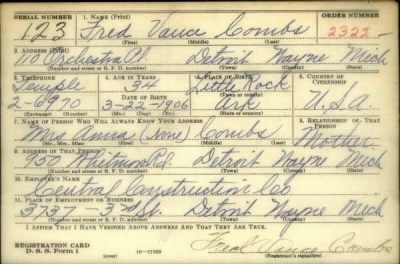 SERIAL NUMBER 1. NAME (Print) ORDER NUMBER
123 Fred Vance Combs 2322
(First) (Middle) (Last)
2. ADDRESS (Print)
110 Orchestra Pl Detroit Wayne Mich
(Number and street or R. F. D. number) (Town) (County) (State)
3. TELEPHONE 4. AGE IN YEARS 5. PLACE OF BIRTH 6. COUNTRY OF CITIZENSHIP
Temple 34 Little Rock
DATE OF BIRTH
2-6970 3-22-1906 Ark U.S.A
(Exchange) (Number) (Mo.) (Day) (Yr.) (State or country)
7. NAME OF PERSON WHO WILL ALWAYS KNOW YOUR ADDRESS 8. RELATIONSHIP OF THAT PERSON
Mrs Anna (None) Combs Mother
(Mr., Mrs., Miss) (First) (Middle) (Last)
9. ADDRESS OF THAT PERSON
950 Whitmore Rd. Detroit Wayne Mich
(Number and street or R. F. D. number) (Town) (County) (State)
10. EMPLOYER'S NAME
Central Construction Co
11. PLACE OF EMPLOYMENT OR BUSINESS
3737-3rd St. Detroit Wayne Mich
(Number and street or R. F. D. number) (Town) (County) (State)
I AFFIRM THAT I HAVE VERIFIED ABOVE ANSWERS AND THAT THEY ARE TRUE.
REGISTRATION CARD
D. S. S. Form 1 (over) 16-17105 Fred Vance Combs